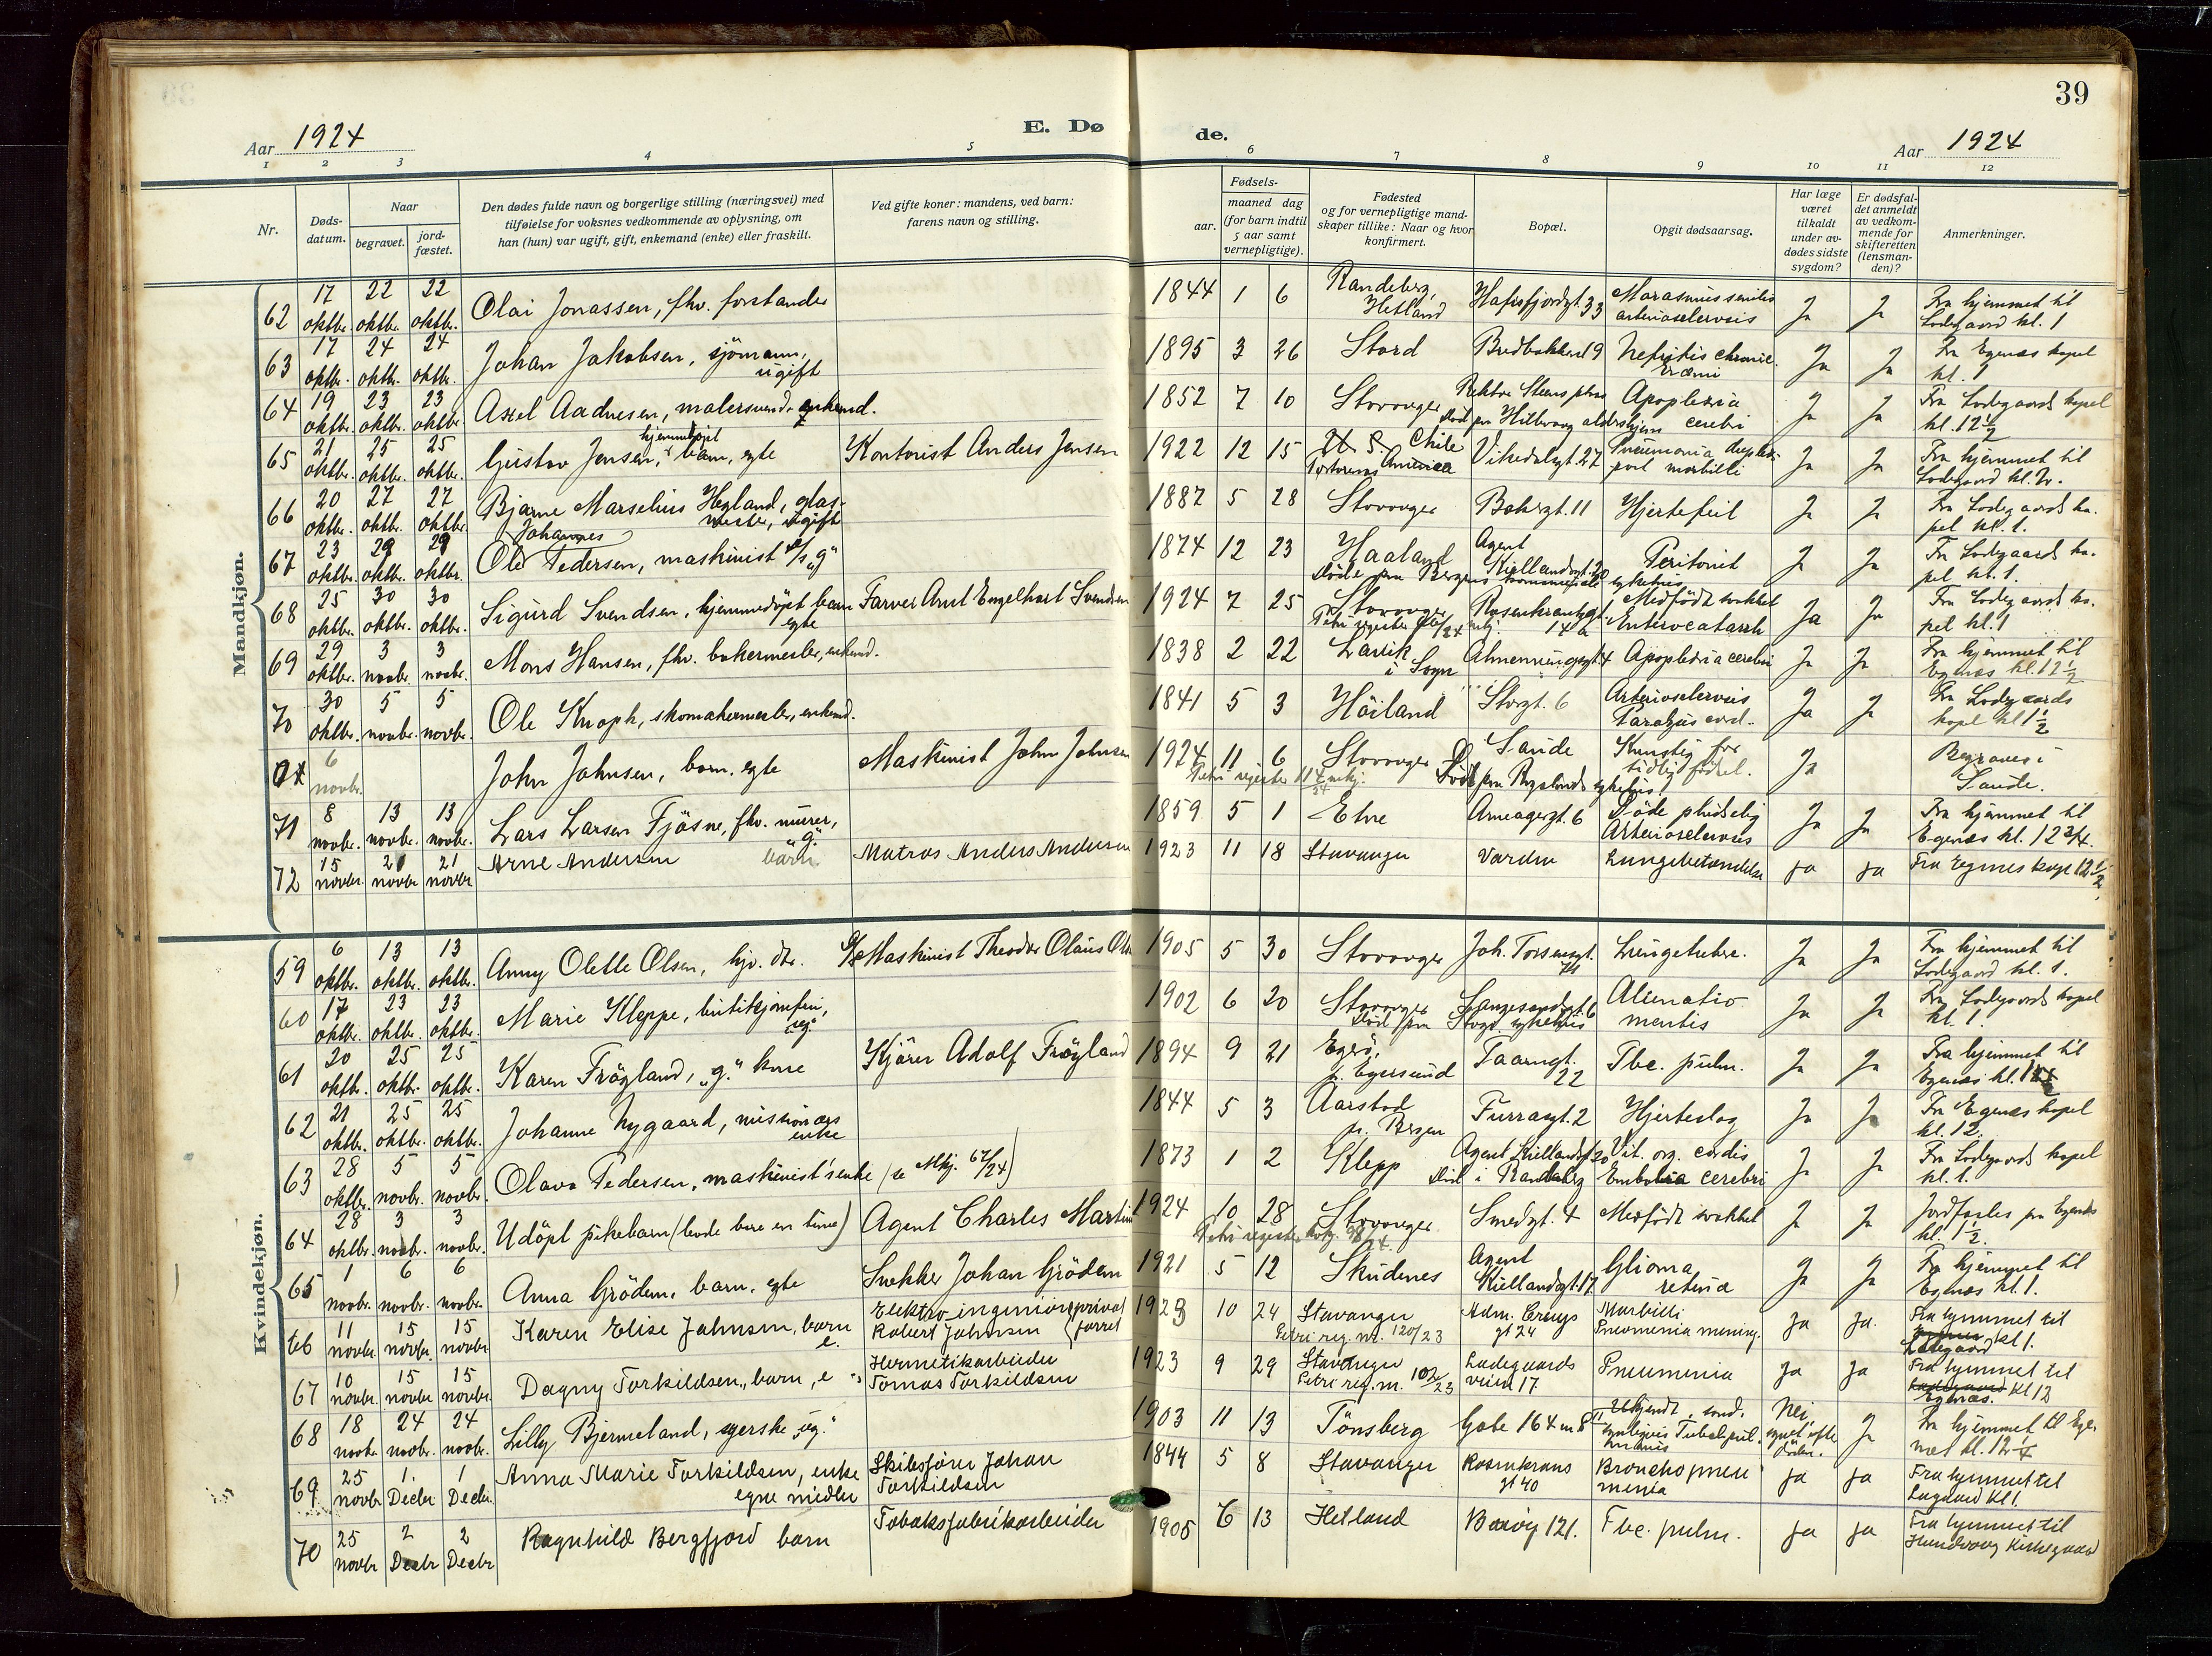 39
Aar 1924
E. Døde.
Aar 1924
1 2 3 4 5 6 7 8 9 10 11 12
Nr.
Døds-
datum.
Naar
begravet.
jord-
fæstet.
Den dødes fulde navn og borgerlige stilling (næringsvei) med
tilføielse for voksnes vedkommende av oplysning, om
han (hun) var ugift, gift, enkemand (enke) eller fraskilt.
Ved gifte koner: mandens, ved barn:
farens navn og stilling.
Fødsels-
aar.
maaned dag
(for barn indtil
5 aar samt
vernepligtige).
Fødested
og for vernepligtige mand-
skaper tillike: Naar og hvor
konfirmert.
Bopæl.
Opgit dødsaarsag.
Har læge
været
tilkaldt
under av-
dødes sidste
sygdom?
Er dødsfal-
det anmeldt
av vedkom-
mende for
skifteretten
(lensman-
den)?
Anmerkninger.
Mandkjøn.
62 17 oktbr. 22 oktbr. 22 oktbr. Olai Jonassen, fhv. forstander 1844 1 6 Randeberg, Hetland Hafrsfjordgt. 33 Marasmus senilis arteriosclerosis Ja Ja Fra hjemmet til Lodegaard kl. 1
63 17 oktbr. 24 oktbr. 24 oktbr. Johan Jakobsen, sjömann, ugift 1895 3 26 Stord Bredbakken 19 Nefritis chronic. Uræmi Ja Ja Fra Egenæs kapel kl. 1
64 19 oktbr. 23 oktbr. 23 oktbr. Axel Aadnesen, malersvend, enkemd. 1852 7 10 Stavanger Rektor Steens plass Död paa Hillevaag aldershjem Apoplexia cerebri Ja Ja Fra Lodegaards kapel kl. 12½
65 21 oktbr. 25 oktbr. 25 oktbr. Gustav Jensen, hjemmedöpt barn, egte Kontorist Anders Jensen 1922 12 15 Chile America Vikedalsgt. 27 Pneumonia post morbilli Ja Ja Fra hjemmet til Lodegaard kl. 2.
66 20 oktbr. 27 oktbr. 27 oktbr. Bjarne Marselius Hegland, glas-mester, ugift 1887 5 28 Stavanger Bakergt. 11 Hjertefeil Ja Ja Fra Lodegaards ka-pel kl. 1.
67 23 oktbr. 29 oktbr. 29 oktbr. Ole Johannes Pedersen, maskinist d/s "g" 1874 12 23 Haaland Agent Kiellandsgt. 20 Döde paa Bergens kommunale sykehus Peritonit Ja Ja Fra Lodegaards ka-pel kl. 1.
68 25 oktbr. 30 oktbr. 30 oktbr. Sigurd Svendsen, hjemmedöpt barn egte Farver Arnt Engelhart Svendsen 1924 7 25 Stavanger Petri register mkj. Rosenkrantzgt. 14 a Medfödt svakhet Enterocatarrh Ja Ja Fra Lodegaards ka-pel kl. 1
69 29 oktbr. 3 novbr. 3 novbr. Mons Hansen, fhv. bakermester, enkemd. 1838 2 22 Lavik i Sogn Almenningsgt. 4 Apoplexia cerebri Ja Ja Fra hjemmet til Egenæs kl. 12½
70 30 oktbr. 5 novbr. 5 novbr. Ole Knoph, skomakermester, enkemd. 1841 5 3 Höiland Storgt. 6 Arteriosclerosis Paralysis cord. Ja Ja Fra Lodegaards kapel kl 1½
6 novbr. John Johnsen, barn, egte Maskinist John Johnsen 1924 11 6 Stavanger Petri register 114/24 mkj. Sande Död paa Rogalands sykehus Kunstig for tidlig födsel. Ja Begraves i Sande.
71 8 novbr. 13 novbr. 13 novbr. Lars Larsen Fjösne, fhv. murer, "g." 1859 5 1 Etne Arneagergt. 6 Döde pludselig Arteriosclerosis Ja Ja Fra hjemmet til Egenæs kl. 12¾.
72 15 novbr. 21 novbr 21 novbr Arne Andersen barn Matros Anders Andersen 1923 11 18 Stavanger Varden Lungebetændelse ja ja Fra Egenes kape 12½
Kvindekjøn.
59 6 oktbr. 13 oktbr. 13 oktbr. Anny Olette Olsen, hjv. dtr. Maskinist Theodor Olaus Olsen 1905 5 30 Stavanger Joh. Torsensgt. Lungetuber. Ja Ja Fra hjemmet til Lodegaard kl. 1.
60 17 oktbr. 23 oktbr. 23 oktbr. Marie Kleppe, butikjomfru, "ug" 1902 6 20 Stavanger Langesandgt. 6 Död paa Stvgr. sykehus Alienatio mentis Ja Ja Fra Lodegaards kapel kl. 1.
61 20 oktbr. 25 oktbr. 25 oktbr. Karen Frögland, "g." kone Kjörer Adolf Frögland 1894 9 21 Egerö, p. Egersund Taarngt. 22 Tbc. pulm. Ja Ja Fra hjemmet til Egenæs kl.
62 21 oktbr. 25 oktbr. 25 oktbr. Johanne Nygaard, missionærs enke 1844 5 3 Aarstad p. Bergen Furrasgt. 2 Hjerteslag Ja Ja Fra Egenæs kapel kl. 12.
63 28 oktbr. 5 novbr. 5 novbr. Olava Pedersen, maskinist's enke (se Mkj. 67/24) 1873 1 2 Klepp Agent Kiellandsgt 20 Död i Randaberg Vit. org. cordis Embolia cerebri Ja Ja Fra Lodegaards kapel kl. 1.
64 28 oktbr. 3 novbr. 3 novbr. Udöpt pikebarn (levde bare en time) Agent Charles Martin 1924 10 28 Stavanger Petri register kvkj. 98/24. Smedgt. 4 Medfödt svakhet Ja Ja Jordfæstes paa Egenæs kl. 1½.
65 1 novbr. 6 novbr. 6 novbr. Anna Grödem, barn, egte Snekker Johan Grödem 1921 5 12 Skudenes Agent Kiellandsgt. 17. Glioma retinæ Ja Ja Fra hjemmet til Egenæs kl. 1.
66 11 novbr 15 novbr. 15 novbr Karen Elise Johnsen, barn e. Elektro ingeniör (privat forret Robert Johnsen 1923 10 24 Stavanger Petri reg. nr. 120/23 Adm. Cruys gt 24 Morbilli Pneumonia mening. ja ja. Fra hjemmet til Ladegaard kl 1.
67 10 novbr. 15 novbr 15 novbr. Dagny Torkildsen, barn, e Hermetikarbeider Tomas Torkildsen 1923 9 29 Stavanger Petri reg. nr. 102/23 Ladegaards veien 17. Pneumonia ja ja Fra hjemmet til Egenæs. Kl 12
68 18 novbr 24 novbr. 24 novbr. Lilly Bjermeland, syerske "ug." 1903 11 13 Tönsberg Gate 164 nr 8 Ukjendt, sand. synligvis Tubel. pul. Nei, synet efter döden. Ja Fra hjemmet til Ege-næs kl.
69 25 novbr 1. Decbr 1 Decbr. Anna Marie Torkildsen, enke egne midler Skibsförer Johan Torkildsen 1844 5 8 Stavanger Rosenkrans gt 40 Bronchopneumonia ja ja Fra hjemmet til Lagaard Kl 1.
70 25 novbr 2 Decbr 2 Decbr Ragnhild Bergfjord barn Tobaksfabrikarbeider 1905 6 13 Hetland Buöy 121. Tbc. pulm. ja ja Fra hjemmet til Hundvaag Kirkegaard